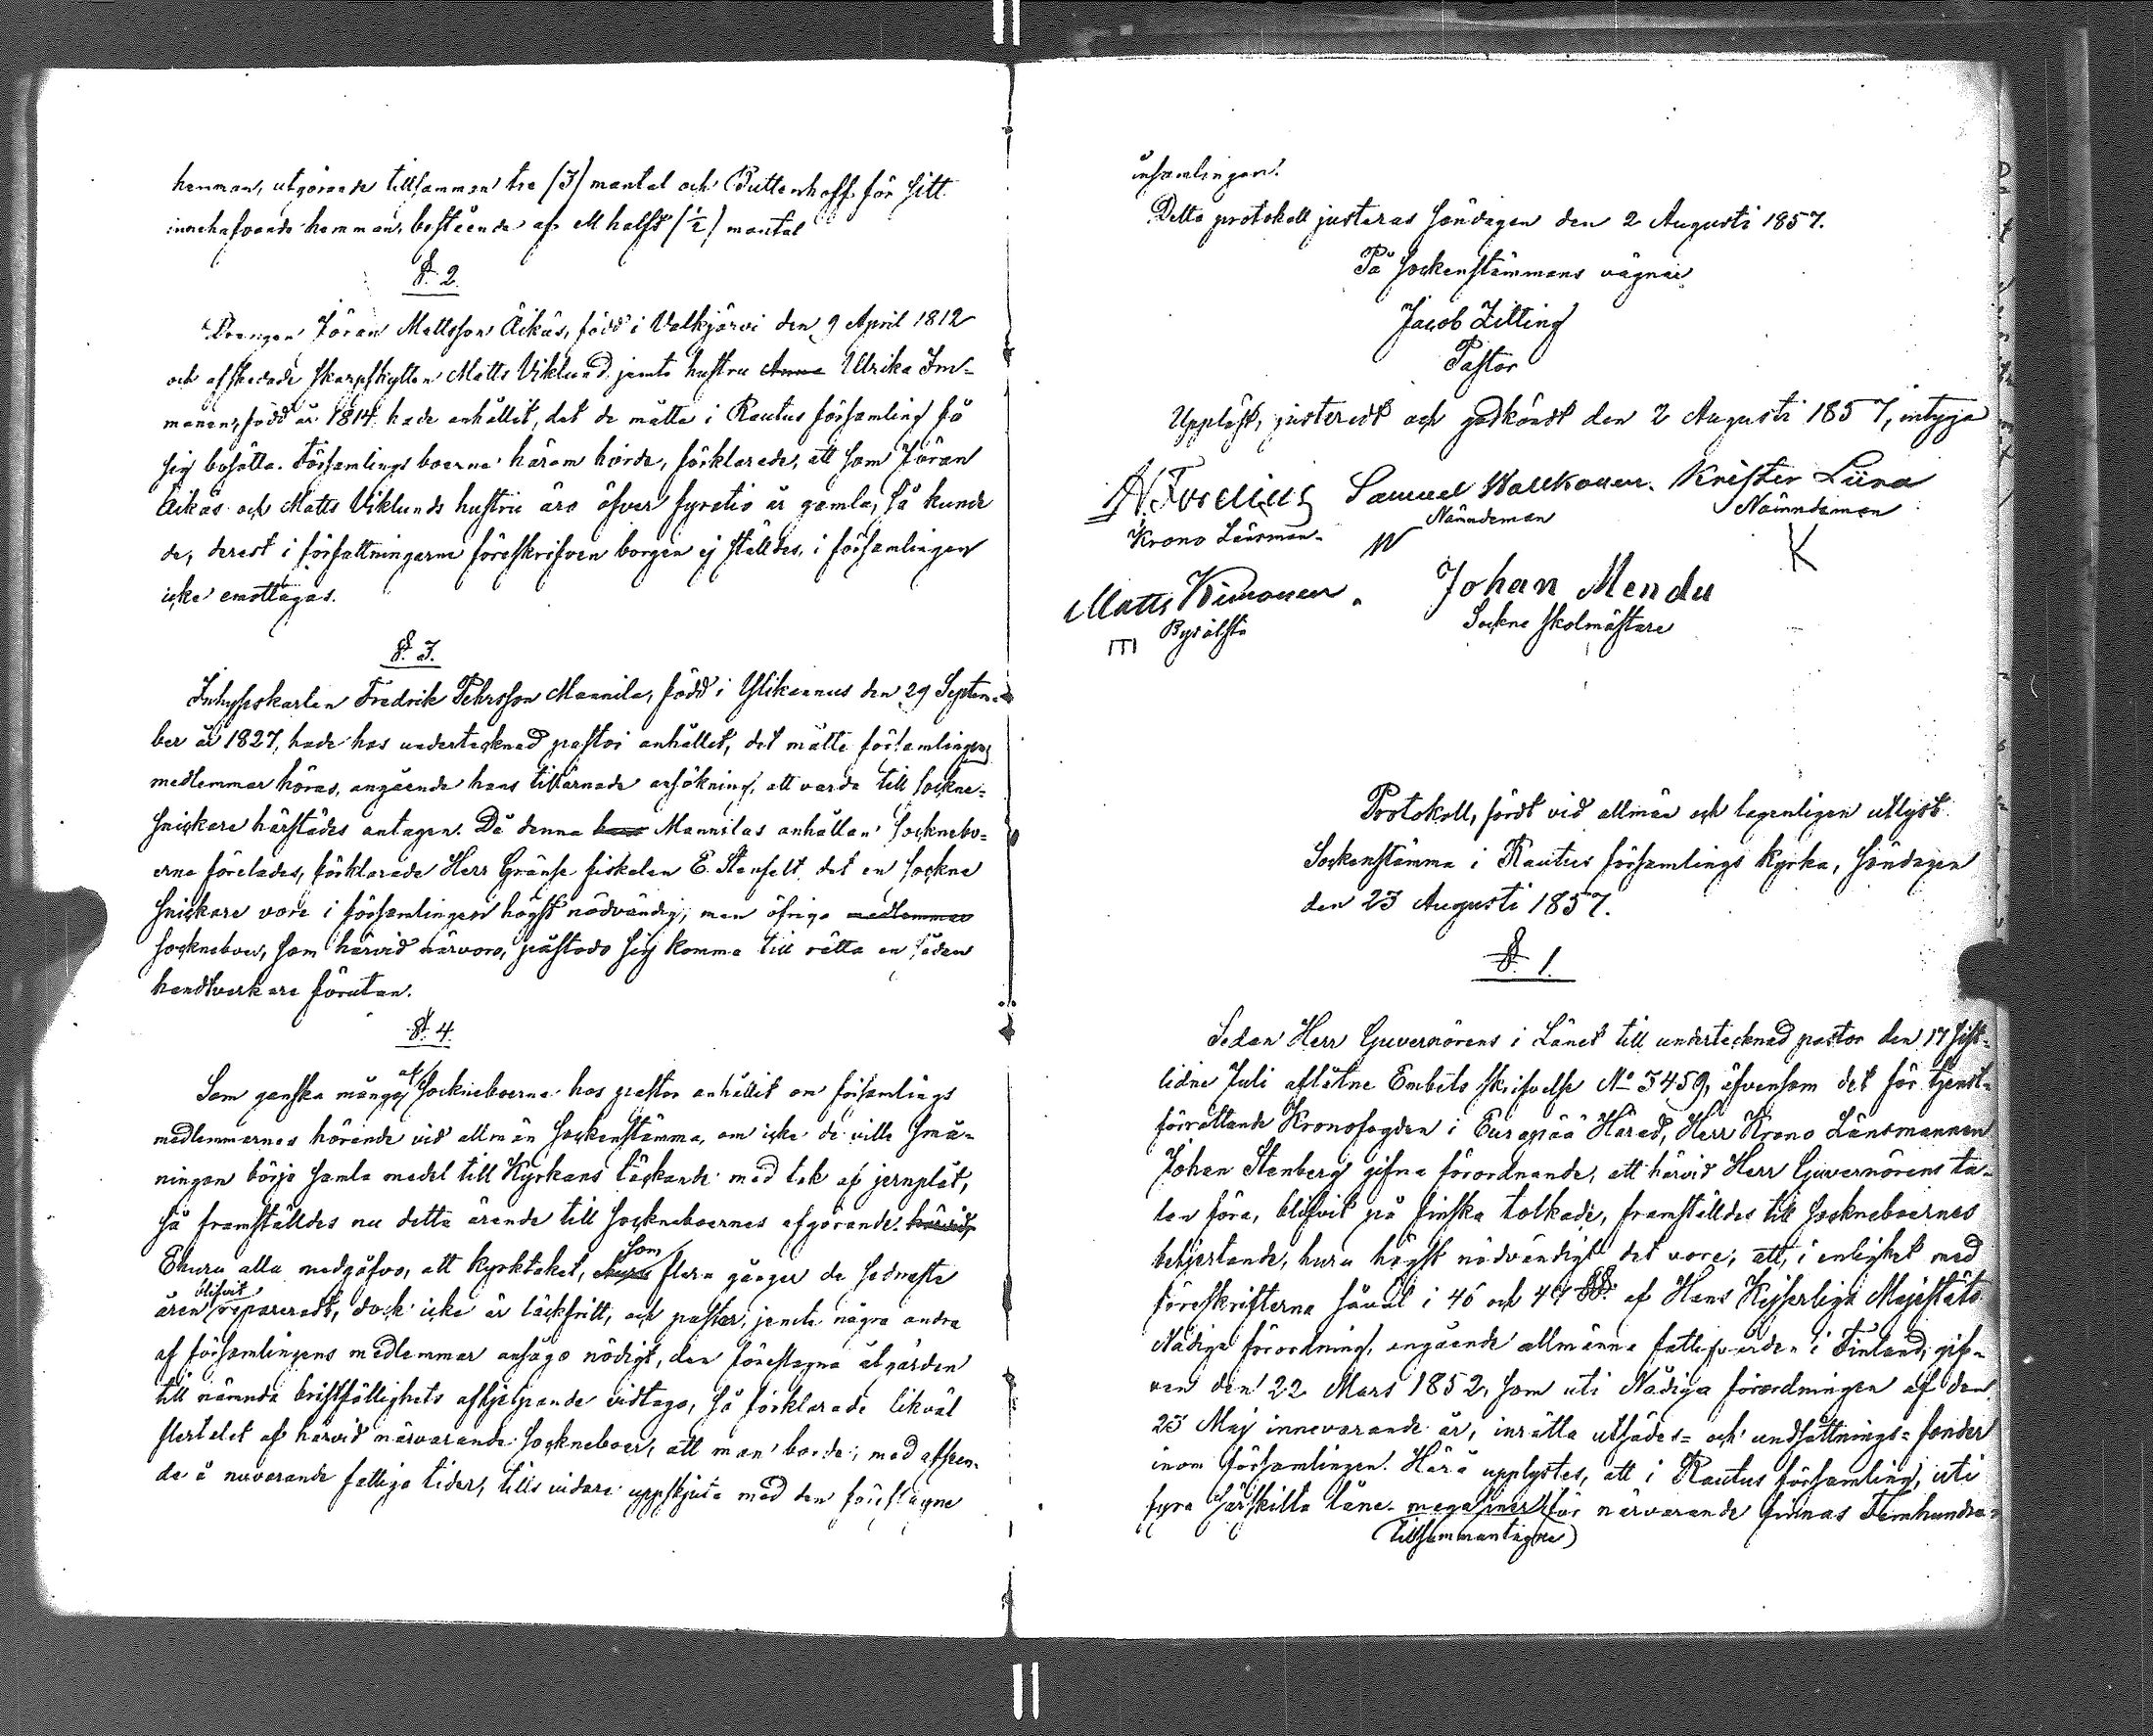 hemman, utgörande tillsamman tre (3) mantal och Buttenhoff för sitt
innehafvande hemman, bestående af ett halft (1/2) mantal
§. 2.
Drengen Jöran Mattsson Äikäs, född i Valkjärvi den 9 April 1812
och afskedade skarpskytten Matts Viklund jemte hustru Anna Ullrika Im-
månen, född år 1814 hade anhållit, det de måtte i Rautus församling få
sig bosätta. Församlingsboerne härom hörde, förklarade, att som Jöran
Äikäs och Matts Viklunds hustru äro öfver fyratio år gamla, så kunde
de, derest i författningarne föreskrifven borgen ej ställdes, i församlingen
icke emottagas.
§. 3.
Inhyseskarlen Fredrik Pehrsson Mannila, född i Ylikannus den 29 Septem-
ber år 1827, hade hos undertecknad pastor anhållit, det måtte församlingens
medlemmar höras, angående hans tillärnade ansökning, att varda till sockne-
snickare härstädes antagen. Då denna hans Mannilas anhållan socknebo-
erne förelades, förklarade Herr Gränse fiskalen E. Stenfelt det en sockne
snickare vore i församlingen högst nödvändig, men öfriga medlemmar
socknebor, som härvid närvoro, påstodo sig komma till rätta en sådan
handtverkare förutan.
§. 4.
Som ganska många af sockneboerne hos pastor anhållit om församlings
medlemmarnes hörande vid allmän sockenstämma, om icke de ville små-
ningom börja samla medel till Kyrkans täckande med tak af jernplåt,
så framställdes nu detta ärende till sockneboernes afgörande härvid.
Ehuru alla medgåfvo, att kyrktaket, ehuru som flera gånger de sednaste
åren blifvit repareradt, dock icke är läckfritt, och pastor, jemte några andra
af församlingens medlemmar ansågo nödigt, den föreslagna åtgärden
till nämnda bristfällighets afhjelpande vidtaga, så förklarade likväl
flertalet af härvid närvarande sockneboer, att man borde, med afseen-
de å nuvarande fattiga tider, tills vidare uppskjuta med den föreslagne
insamlingen.
Detta protokoll justeras söndagen den 2 Augusti 1857.
På Sockenstämmans vägnar
Jacob Zitting
Pastor
Uppläst, justeradt och godkändt den 2 Augusti 1857, intyga
A. Fordius Samuel Wallkonen. Krister Liira
Krono Länsman. Nämndeman Nämndeman
W K
Matts Kimonen. Johan Mendu
Byålsta Sockne skolmästare
m
Protokoll, fördt vid allmän och lagenligen utlyst
Sockenstämma i Rautus församlings kyrka, söndagen
den 23 Augusti 1857.
§. 1.
Sedan Herr Guvernörens i Länet till undertecknad pastor den 17 sist-
lidne Juli aflåtne Embets skrifvelse No 3459, äfvensom det för tjenst-
förrättande Kronofogden i Euräpää Härad, Herr Krono Länsmannen
Johan Stenberg gifna förordnande, att härvid Herr Guvernörens ta-
lan föra, blifvit på finska tolkade, framställdes till sockneboernes
behjertande, huru högst nödvändigt det vore, att, i enlighet med
föreskrifterna såväl i 46 och 47 §§. af Hans Kejserliga Majestäts
Nådiga förordning, angående allmänna fattigvården i Finland, gif-
ven den 22 Mars 1852, som uti Nådiga förordningen af den
23 Maj innevarande år, inrätta utsädes- och undsättnings-fonder
inom församlingen. Härå upplystes, att i Rautus församling, uti
fyra särskilta låne-magasiner för närvarande finnas Femhundra-
(tillsammantagne)